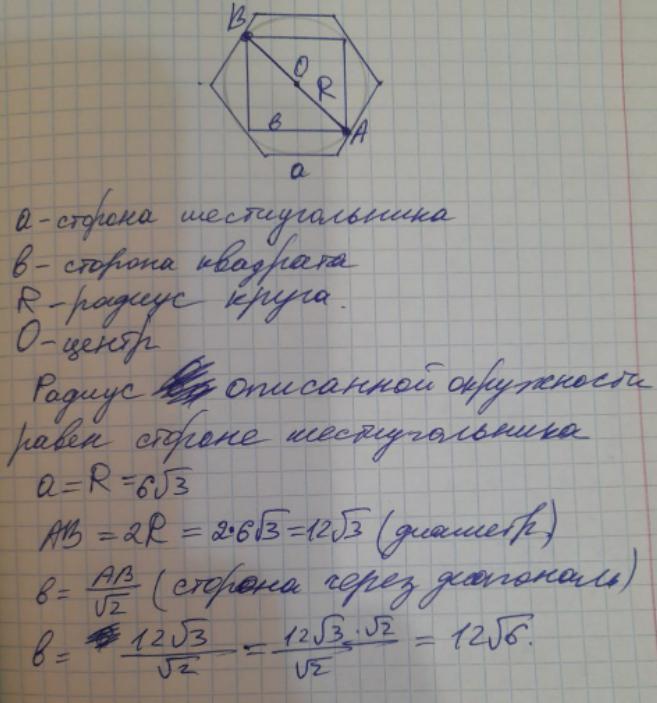 B
O
R
в
A
a
a - сторона шестиугольника
в - сторона квадрата
R - радиус круга.
O - центр
Радиус описанной окружности
равен стороне шестиугольника
a = R = 6√3
AB = 2R = 2·6√3 = 12√3 (диаметр)
в = AB/√2 (сторона через диагональ)
в = 12√3/√2 = 12√3·√2/√2 = 12√6.